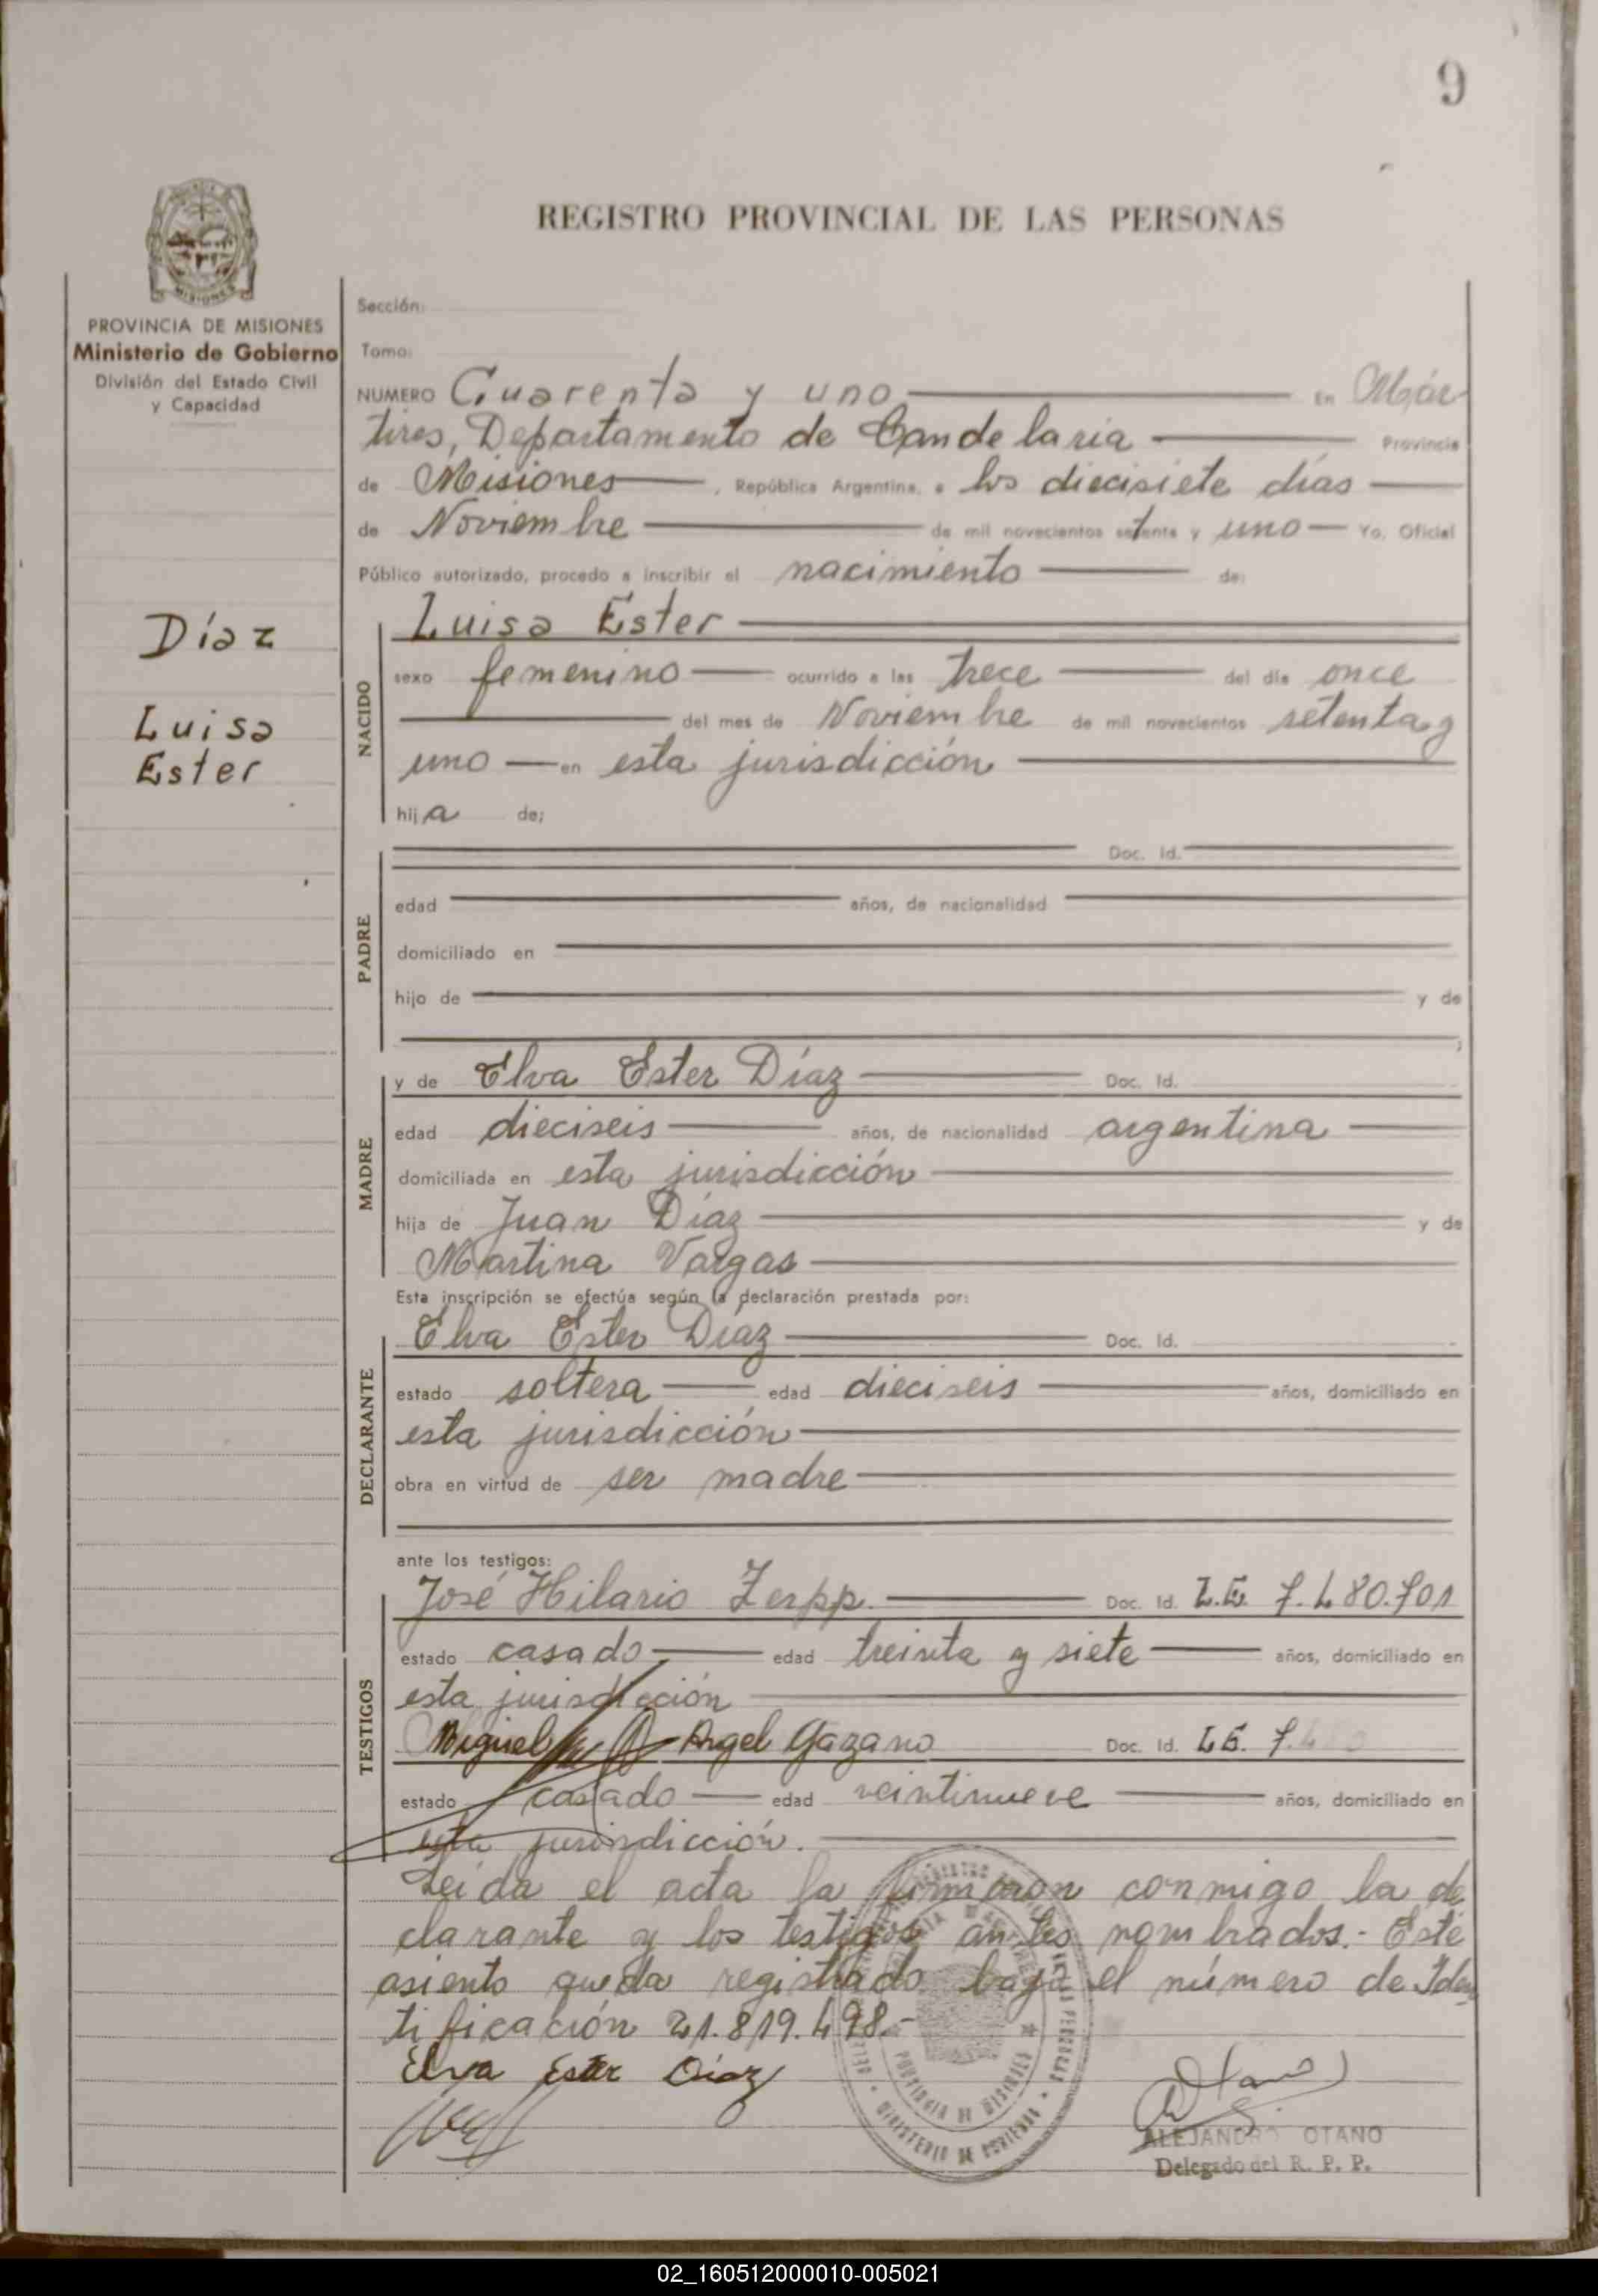 9
REGISTRO PROVINCIAL DE LAS PERSONAS
MISIONES
PROVINCIA DE MISIONES
Ministerio de Gobierno
División del Estado Civil
y Capacidad
Díaz
Luisa
Ester
Sección:
Tomo:
NUMERO Cuarenta y uno En Már
tires, Departamento de Candelaria Provincia
de Misiones, República Argentina, a los diecisiete días
de Noviembre de mil novecientos setenta y uno Yo, Oficial
Público autorizado, procedo a inscribir el nacimiento de:
NACIDO
Luisa Ester
sexo femenino ocurrido a las trece del día once
del mes de Noviembre de mil novecientos setenta y
uno en esta jurisdicción
hija de;
PADRE
Doc. Id.
edad años, de nacionalidad
domiciliado en
hijo de y de
;
MADRE
y de Elva Ester Díaz Doc. Id.
edad dieciseis años, de nacionalidad argentina
domiciliada en esta jurisdicción
hija de Juan Díaz y de
Martina Vargas
Esta inscripción se efectúa según la declaración prestada por:
DECLARANTE
Elva Ester Díaz Doc. Id.
estado soltera edad dieciseis años, domiciliado en
esta jurisdicción
obra en virtud de ser madre
ante los testigos:
TESTIGOS
José Hilario Zerpp. Doc. Id. L.E. 7.480.701
estado casado edad treinta y siete años, domiciliado en
esta jurisdicción
Miguel Angel Gazano Doc. Id. LE. 7.
estado casado edad veintinueve años, domiciliado en
esta jurisdicción.
Leída el acta la firmaron conmigo la de
clarante y los testigos antes nombrados.- Este
asiento queda registrado bajo el número de Iden
tificación 21.819.498.-
Elva Ester Díaz
PROVINCIA DE MISIONES
MINISTERIO DE GOBIERNO
ALEJANDRO OTANO
Delegado del R. P. P.
02_160512000010-005021